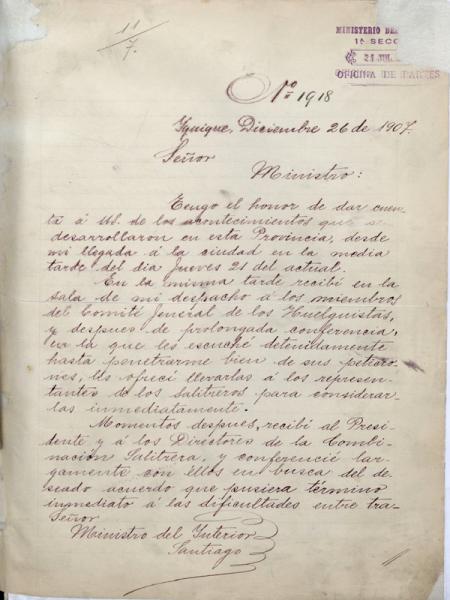 11/7.
MINISTERIO DE
1ª SECC
OFICINA DE PARTES
Nº 1918
Iquique, Diciembre 26 de 1907.
Señor
Ministro:
Tengo el honor de dar cuen-
ta á US. de los acontecimientos que se
desarrollaron en esta Provincia, desde
mi llegada á la ciudad en la media
tarde del dia Jueves 21 del actual.
En la misma tarde recibí en la
sala de mi despacho a los miembros
del Comité Jeneral de los Huelguistas,
y despues de prolongada conferencia,
en la que les escuché detenidamente
hasta penetrarme bien de sus peticio-
nes, les ofrecí llevarlas á los represen-
tantes de los Salitreros para considerar-
las inmediatamente.
Momentos despues, recibí al Presi-
dente y á los Directores de la Combi-
nación Salitrera, y conferencié lar-
gamente con ellos en busca del de-
seado acuerdo que pusiera término
inmediato á las dificultades entre tra-
Señor
Ministro del Interior
Santiago